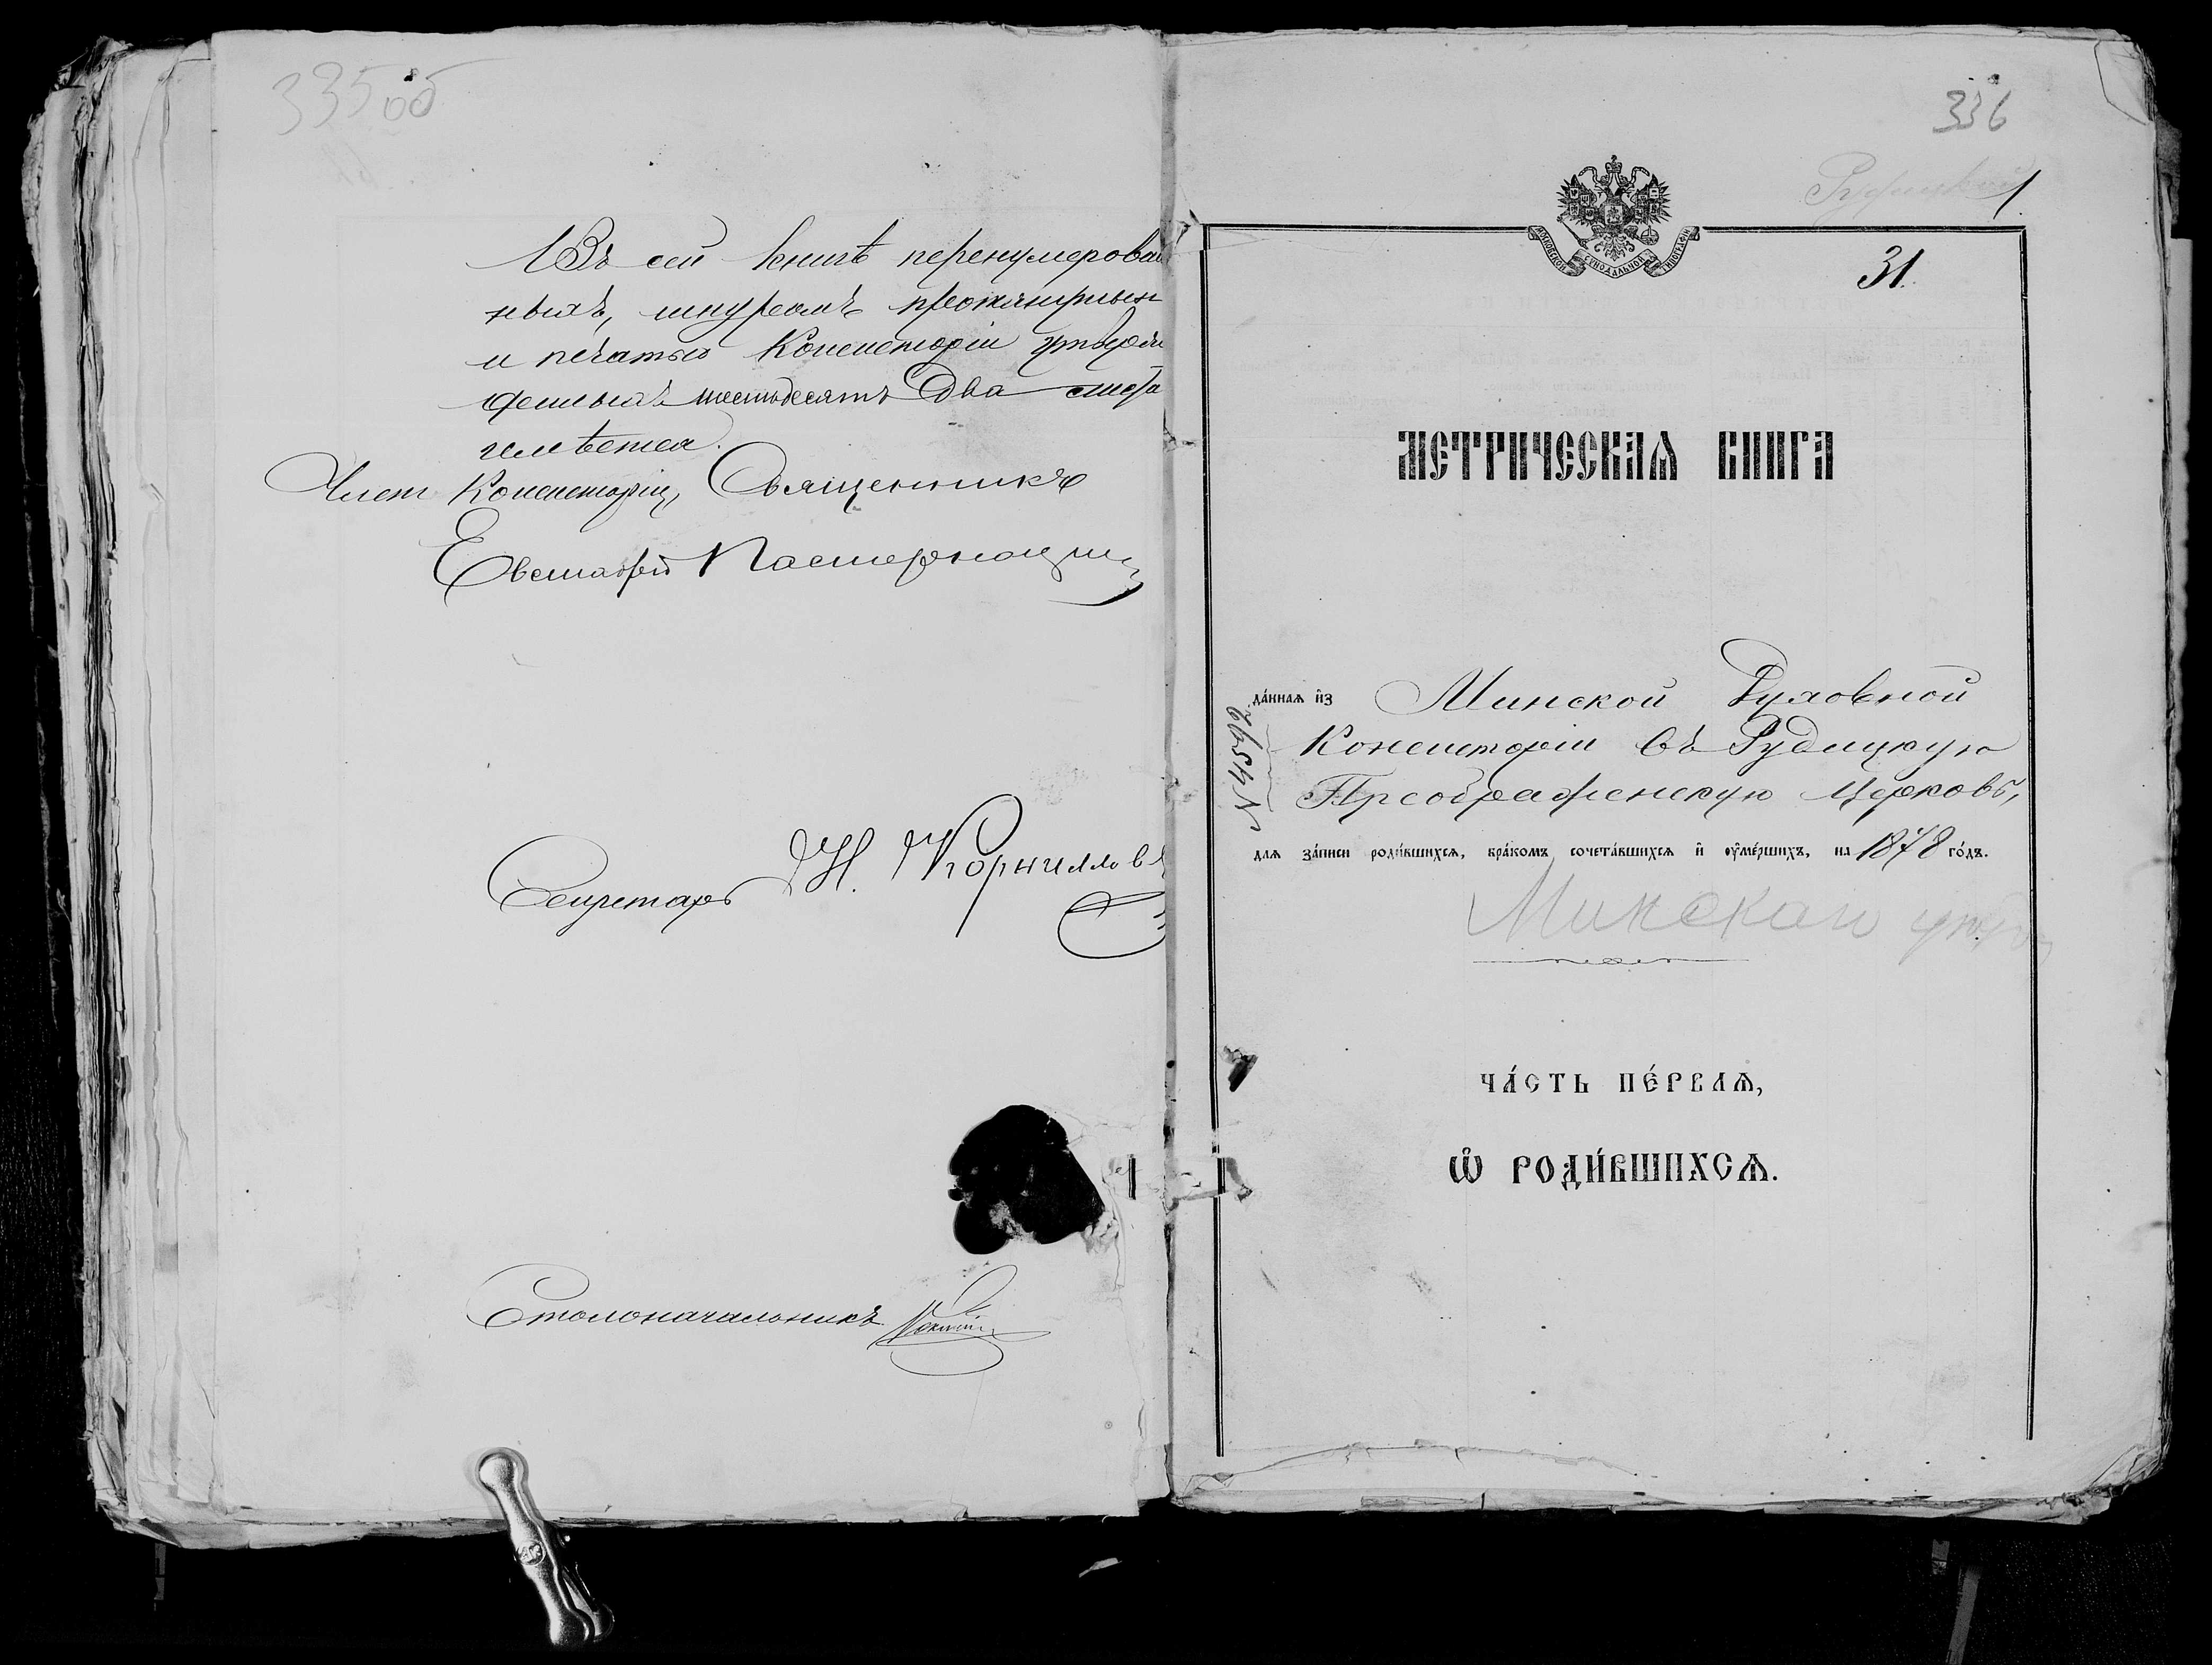 335 об
Въ сей книгѣ перенумерован
ныхъ, шнуромъ
и печатью Консисторіи утверж
денныхъ шестьдесятъ два листа
имѣется.
Член Консисторіи, Священникъ
Евстафій
Секретарь Н. Корниллов
Столоначальникъ
336
1
МОСКОВСКОЙ СУНОДАЛЬНОЙ ТИПОГРАФІИ
31.
МЕТРИЧЕСКАѦ КНИГА
да́ннаѧ и҆з Минской Духовной
Консисторіи въ Рудицкую
Преображенскую Церковь,
№ 4542
для за́писи роди́вшихсѧ, бра́комъ сочета́вшихсѧ и҆ ѹ҆ме́ршихъ, на 1878 го́дъ.
Минскаго
ЧА́СТЬ ПЕ́РВАѦ,
Ѽ РОДИ́ВШИХСѦ.